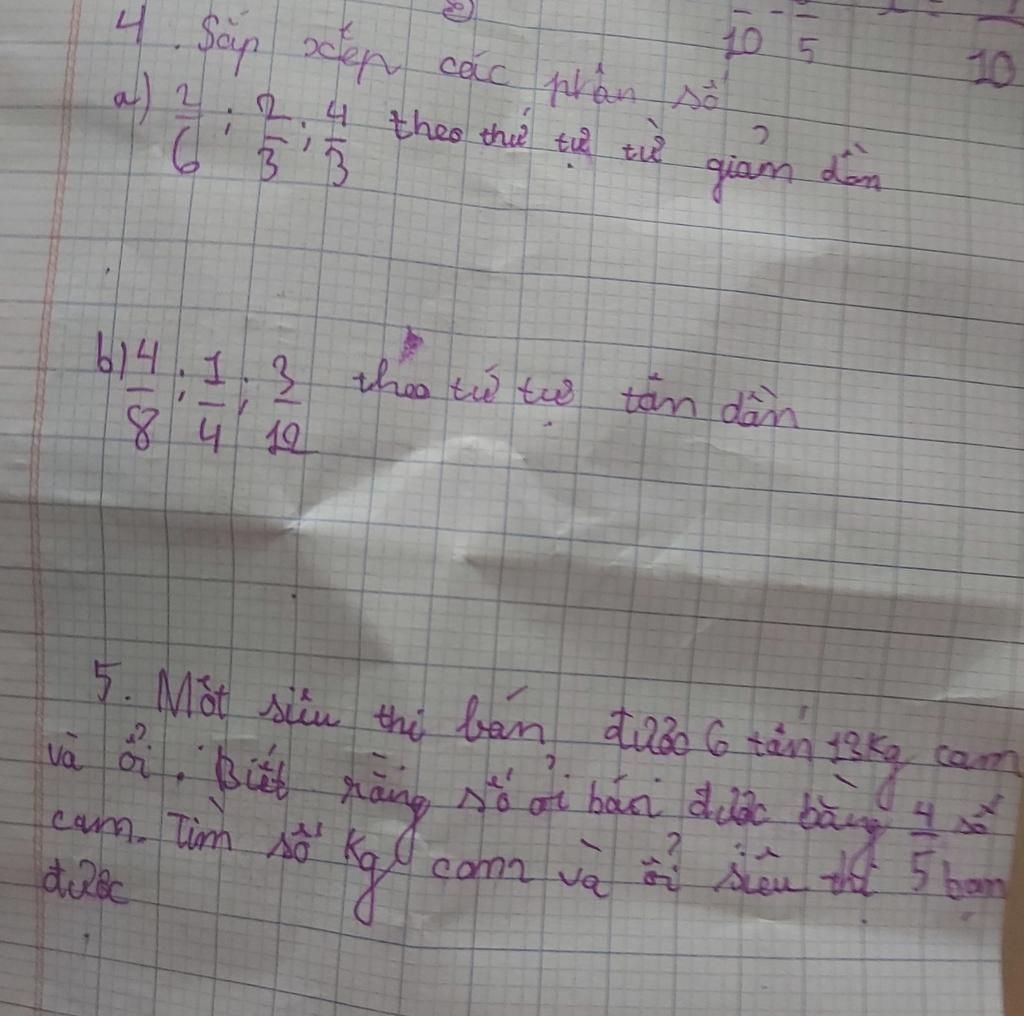 10 5 10
4. Sắp xếp các phân số
a) 2/6 ; 2/3 ; 4/3 theo thứ tự từ giảm dần
b) 4/8 ; 1/4 ; 3/12 theo tứ tự tăn dần
5. Một siêu thị bán được 6 tấn 13kg cam
và ổi. Biết rằng số ổi bán được bằng 4/5 số
cam. Tìm số kg cam và ổi siêu thị bán
được